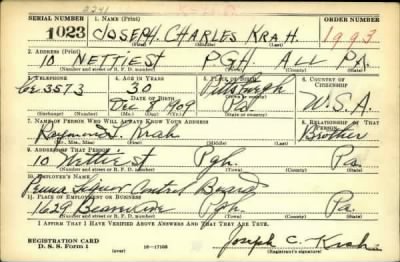 SERIAL NUMBER 1. NAME (Print) ORDER NUMBER
1023 JOSEPH CHARLES KRAH. 1993
(First) (Middle) (Last)
2. ADDRESS (Print)
10 NETTIE ST PGH. ALL PA.
(Number and street or R. F. D. number) (Town) (County) (State)
3. TELEPHONE 4. AGE IN YEARS 5. PLACE OF BIRTH 6. COUNTRY OF CITIZENSHIP
3573 30 Pittsburgh
DATE OF BIRTH (Town or county)
Dec 9 1909 Pa U.S.A.
(Exchange) (No.) (Mo.) (Day) (Yr.) (State or country)
7. NAME OF PERSON WHO WILL ALWAYS KNOW YOUR ADDRESS 8. RELATIONSHIP OF THAT PERSON
Raymond J. Krah Brother
(Mr., Mrs., Miss) (First) (Middle) (Last)
9. ADDRESS OF THAT PERSON
10 Nettie St Pgh. Pa.
(Number and street or R. F. D. number) (Town) (County) (State)
10. EMPLOYER'S NAME
Penna Liquor Control Board
11. PLACE OF EMPLOYMENT OR BUSINESS
1629 Pgh. Pa.
(Number and street or R. F. D. number) (Town) (County) (State)
I AFFIRM THAT I HAVE VERIFIED ABOVE ANSWERS AND THAT THEY ARE TRUE.
REGISTRATION CARD
D. S. S. Form 1 (over) 16-17105 Joseph C. Krah
(Registrant's signature)